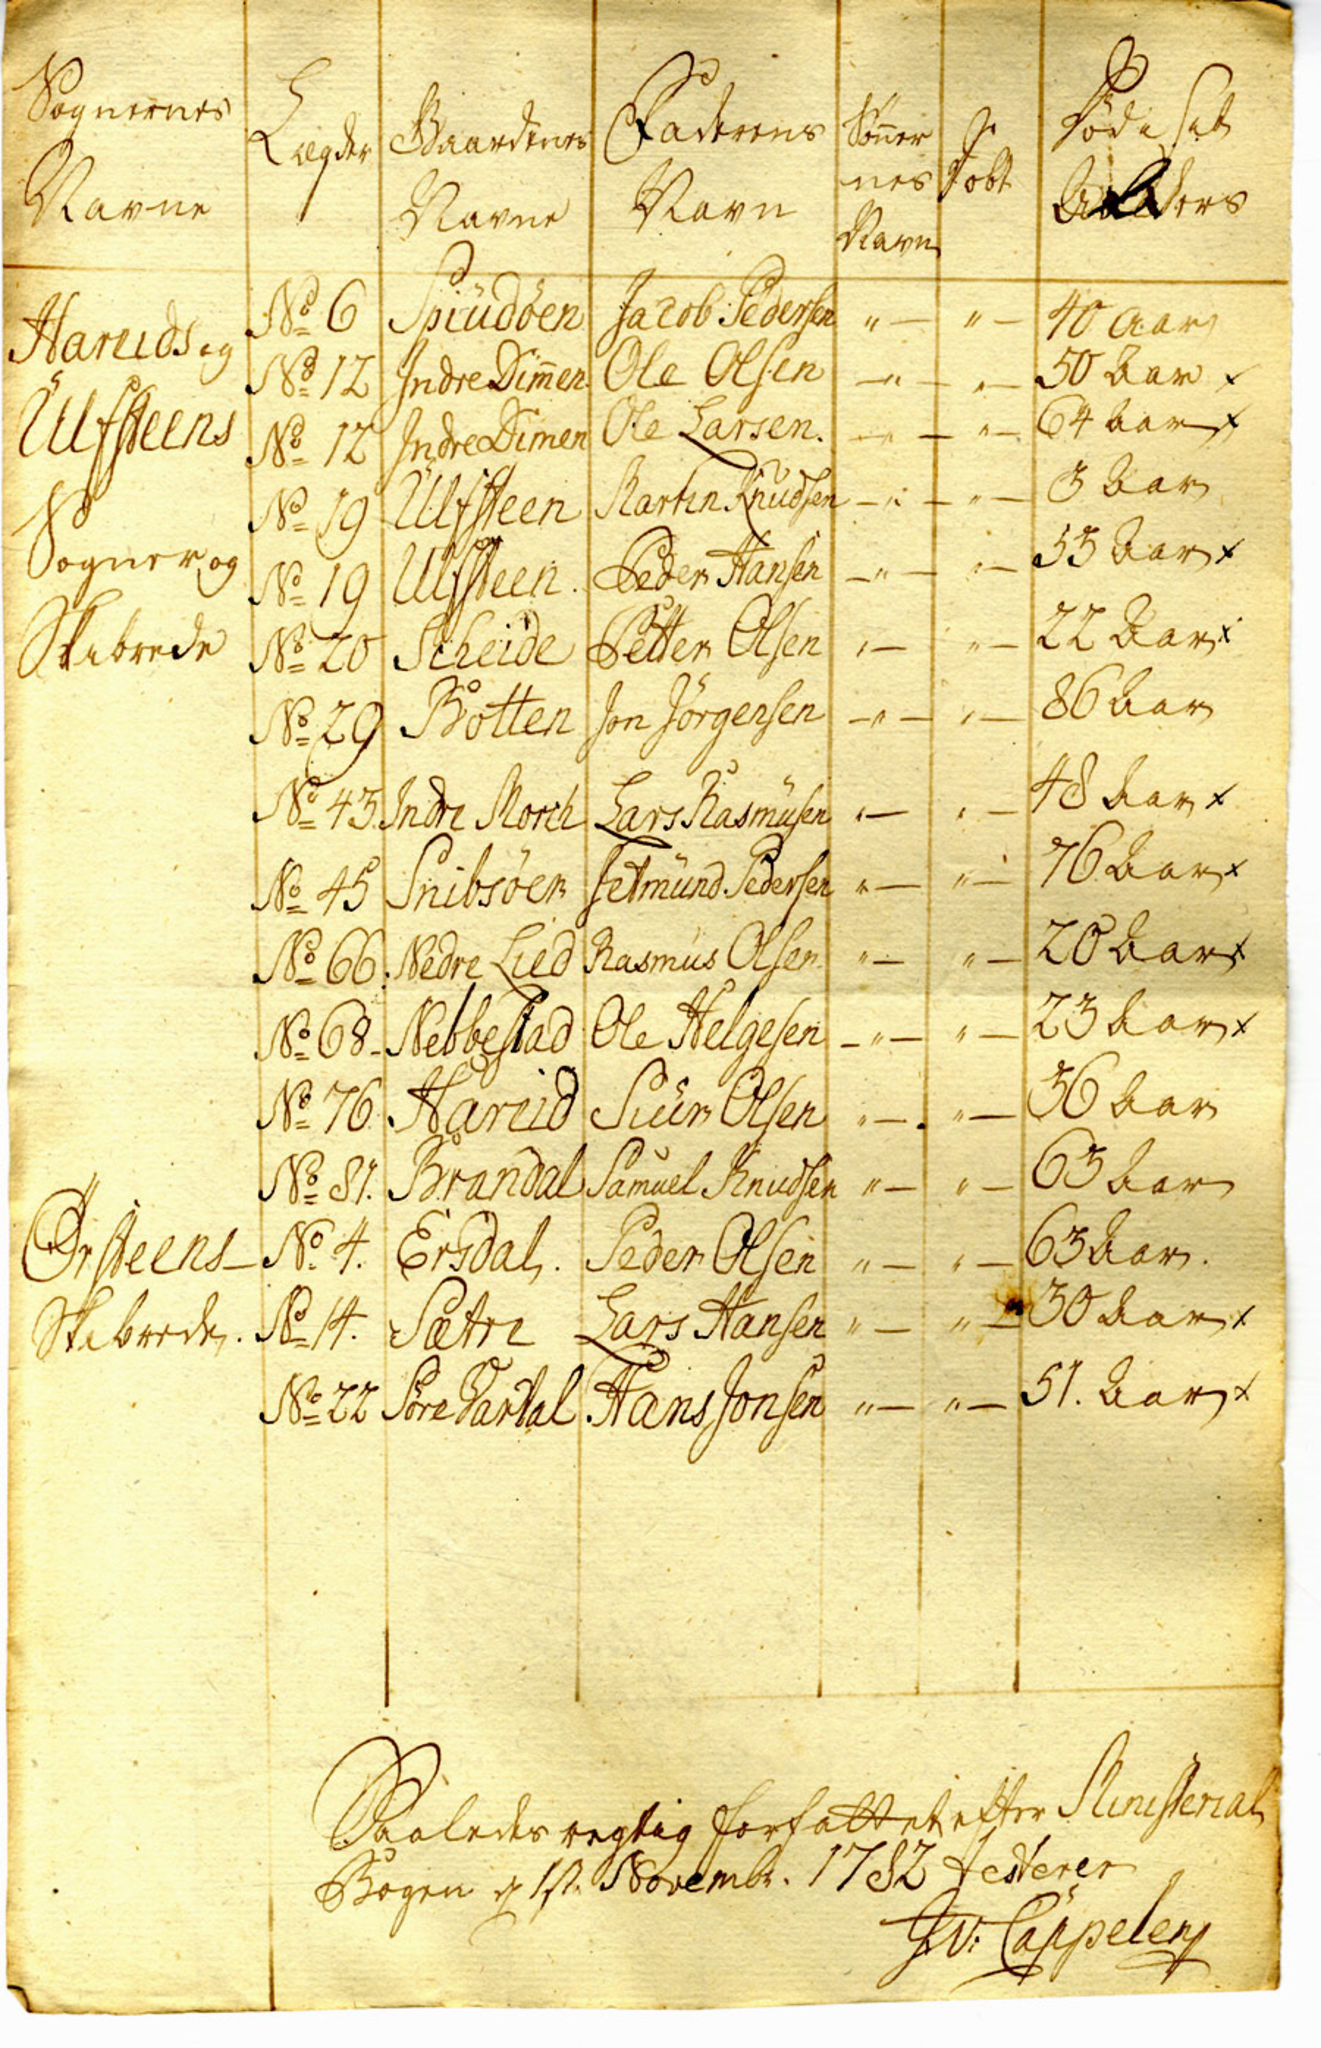 Sognernes Navne | Lægder | Gaardenes Navne | Faderens Navn | Sønnernes Navn | Føbt | Døde Alders
Hareids og | No 6 | Spiudöen | Jacob Pedersen | " — | " — | 40 aar
No 12 | Indre Dim̄en | Ole Olsen | — " — | " — | 50 Aar x
Ülfsteens | No 12 | Indre Dimen | Ole Larsen. | — " — | " — | 64 aar x
No 19 | Ülfsteen | Martin Knudsen | — " — | " — | 3 Aar
Sogner og | No 19 | Ulfsteen. | Peder Hansen | — " — | " — | 55 Aar x
Skibrede | No 20 | Scheide | Petter Olsen | " — | " — | 22 Aar x
No 29 | Botten | Jon Jörgensen | — " — | " — | 86 Aar
No 43 | Indre Morch | Lars Rasmüsen | " — | " — | 48 Aar x
No 45 | Snibsöer | Setmünd Pedersen | " — | " — | 76 Aar x
No 66. | Nedre Lied | Rasmus Olsen | " — | " — | 20 Aar x
No 68 - | Nebbestad | Ole Helgesen | — " — | " — | 23 Aar x
No 76. | Hareid | Siür Olsen | " — . | " — | 56 Aar
No 81. | Brandal | Samuel Knudsen | " — | " — | 63 Aar
Örsteens — | No 4. | Ersdal. | Peder Olsen | " — | " — | 63 Aar.
Skibrede. | No 14. | Sætre | Lars Hansen | " — | " — | 30 Aar x
No 22 | Söre Vartdal | Hans Jonsen | " — | " — | 51. Aar x
Saaledes regtig forfattet efter Ministerial
Bogen d 1ste Novembr. 1782 testerer
J. V: Cappelen